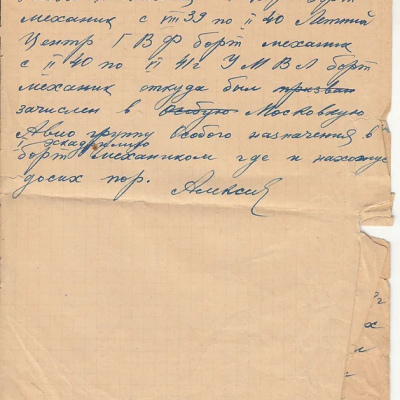 механик с VIII 39 по II 40 Летний
Центр Г В Ф борт механик
с II 40 по VI 41г У М В Л борт
механик откуда был призван
зачислен в Особую Московкую
Авио группу Особого назначения в
II эскадрилию
борт механиком где и нахожус
досих пор.